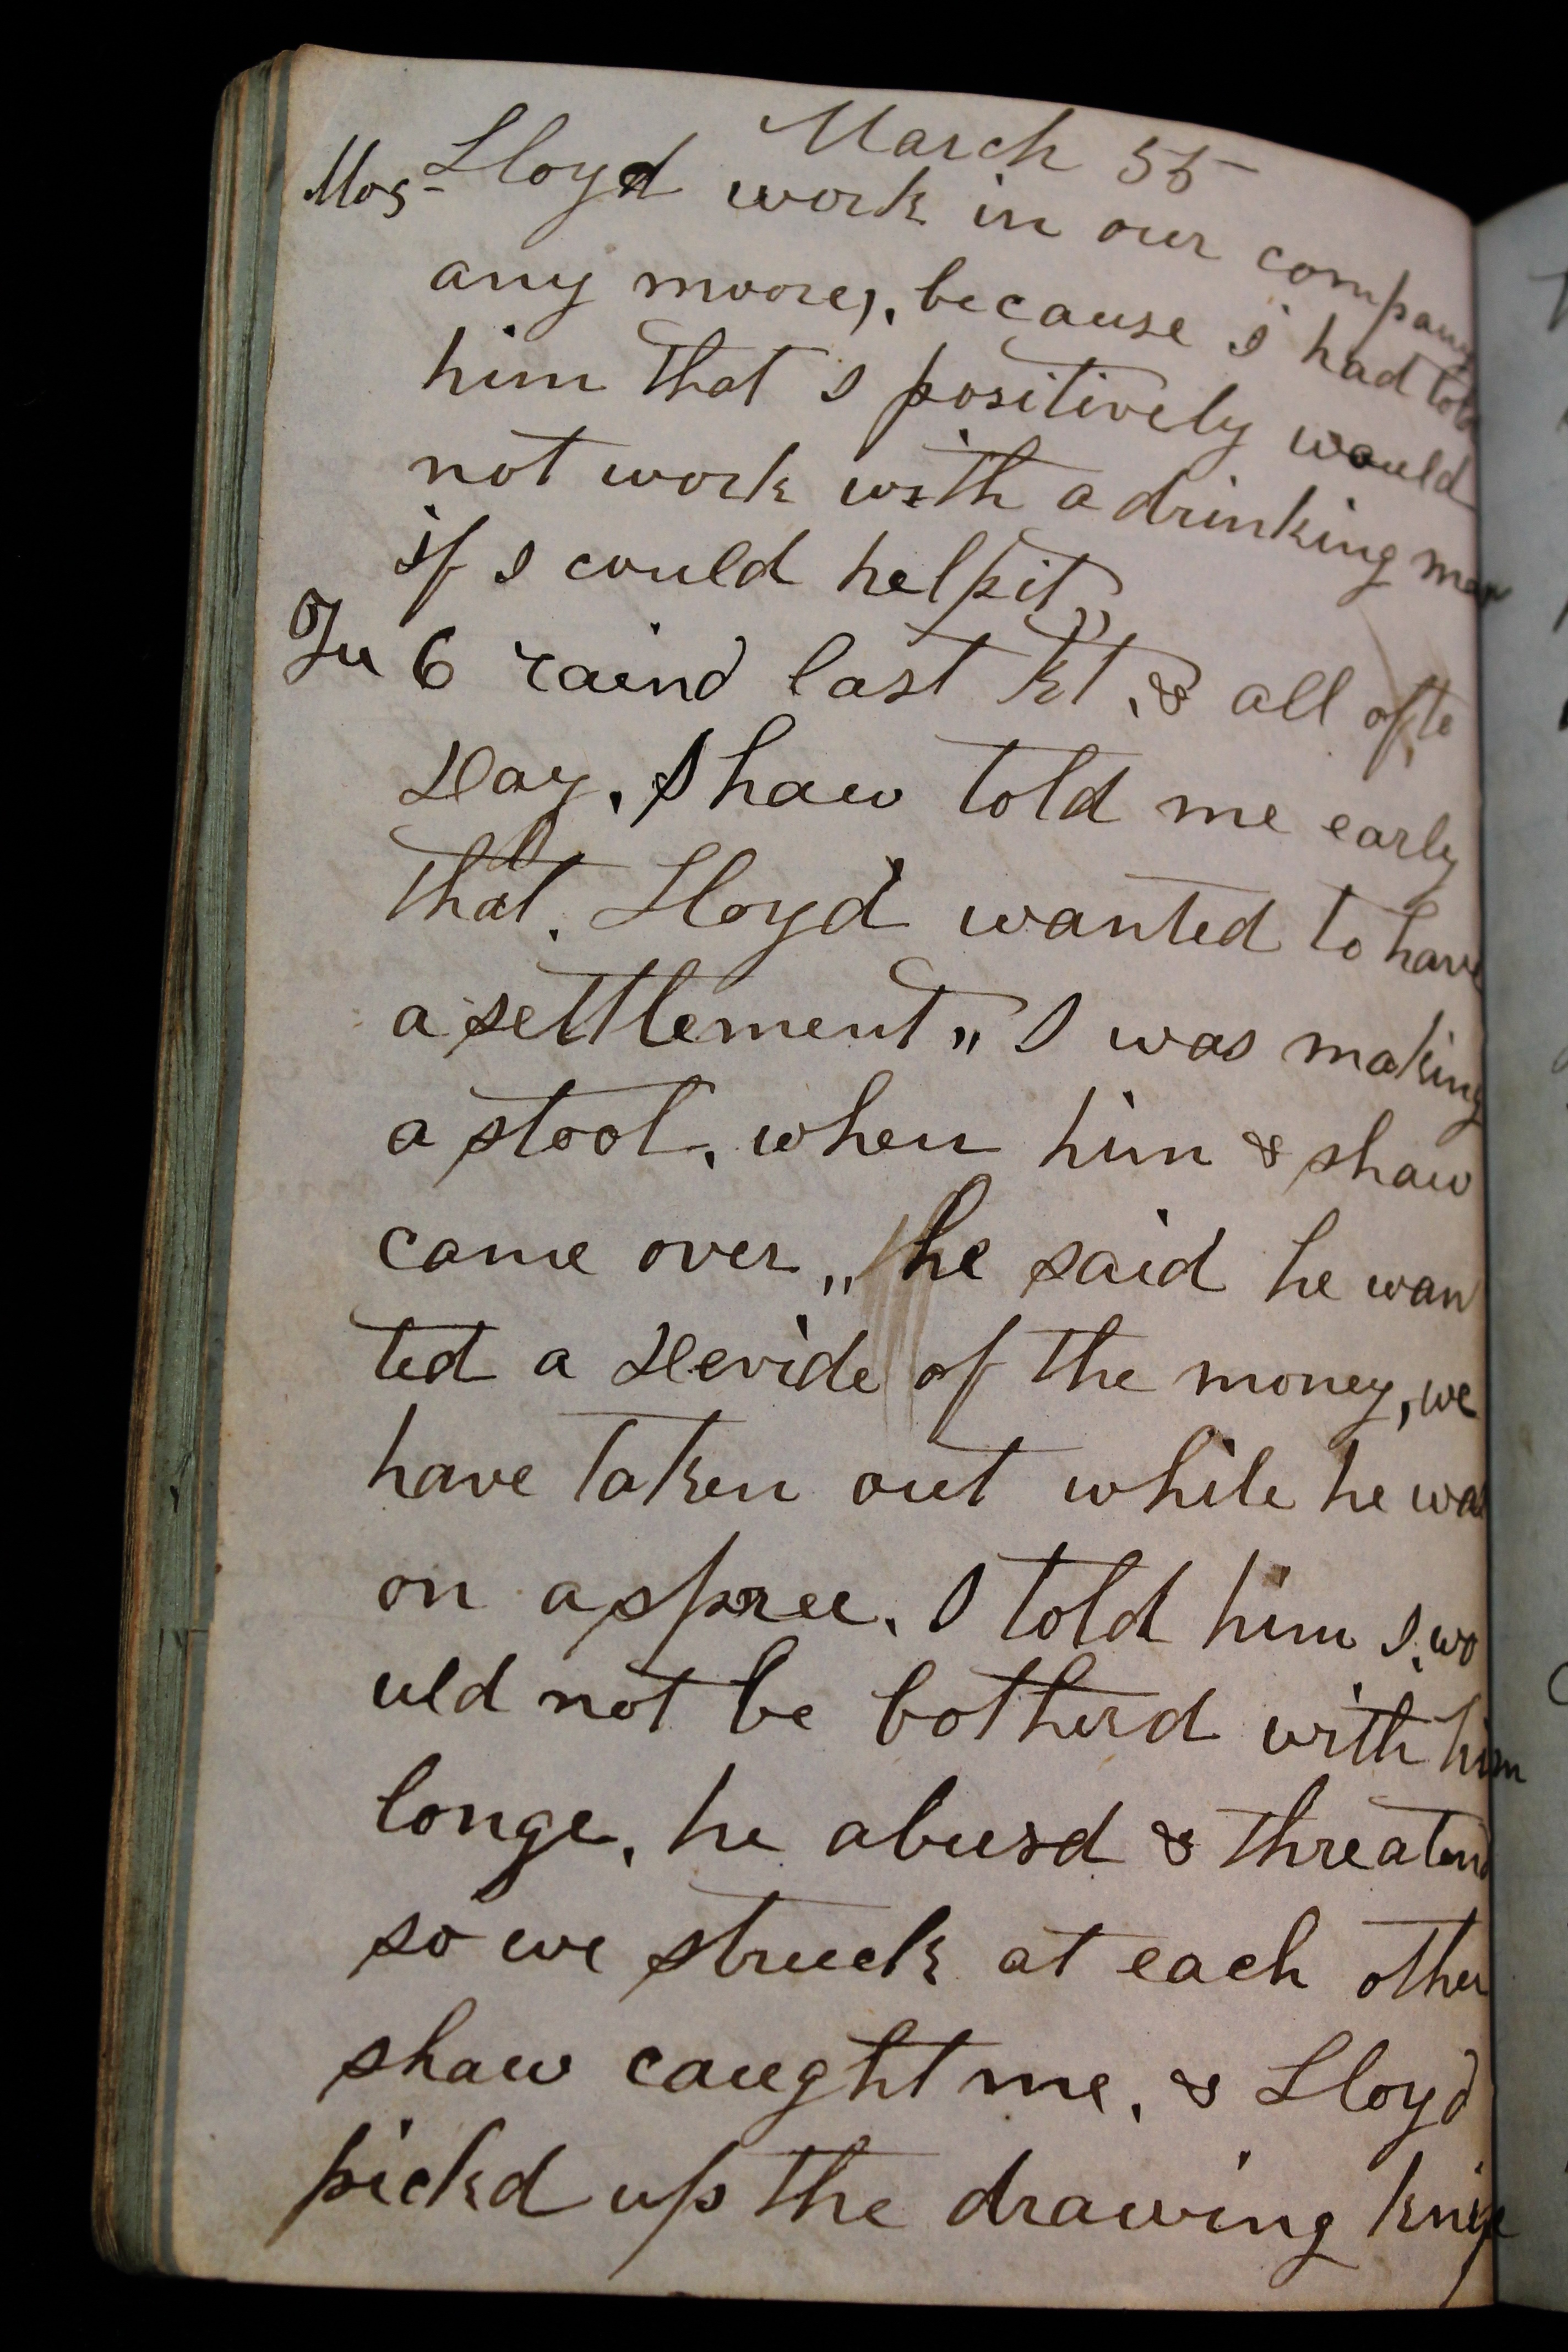 March 55
Mo 5 Lloyd work in our company
any moore, because i had told
him that I positively would
not work with a drinking man
if I could helpit,,
Tu 6 raind last Nt, & all of te
Day, Shaw told me early
that, Lloyd wanted to have
a settlement,, I was making
a stool, when him & shaw
came over,, he said he wan
ted a Devide of the money, we
have taken out while he was
on a spree, I told him I wo
uld not be botherd with him
longe, he abusd & threatend
so we struck at each other
shaw caught me, & Lloyd
pickd up the drawing knife